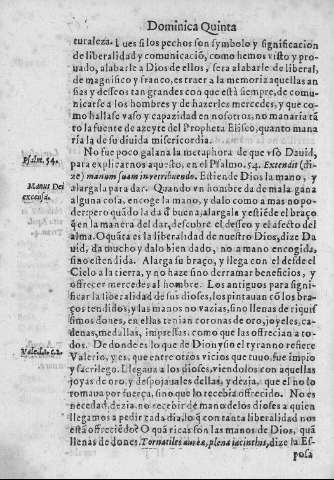 Dominica Quinta
turaleza. Pues si los pechos son symbolo y significacion
de liberalidad y comunicació, como hemos visto y pro-
uado, alabarle a Dios de ellos, sera alabarle de liberal,
de magnifico y franco, es traer a la memoria aquellas an
sias y deseos tan grandes con que está siempre, de comu-
nicarse a los hombres y de hazerles mercedes, y que co-
mo hallasse vaso y capacidad en nosotros, no manaria tá
to la fuente de azeyte del Propheta Eliseo, quanto mana
ria la de su diuida misericordia.
No fue poco galana la metaphora de que vsó Dauid,
para explicarnos aquesto, en el Psalmo. 54. Extendit (di-
Psalm. 54.
ze) manum suam in retribuendo. Estiende Dios la mano, y
Manus Dei
alargala para dar. Quando vn hombre da de mala gana
excussa.
alguna cosa, encoge la mano, y dalo como a mas no po-
der: pero quádo la da d̃ buena, alarga y estiẽde el braço
q̃ en la manera del dar, descubre el deseo y el afecto del
alma. O quáta es la liberalidad de nuestro Dios, dize Da
uid, da mucho y dalo bien dado, no a mano encogida,
sino estendida. Alarga su braço, y llega con el desde el
Cielo a la tierra, y no haze sino derramar beneficios, y
offrecer mercedes al hombre. Los antiguos para signi-
ficar la liberalidad de sus dioses, los pintauan cõ los bra-
ços tendidos, y las manos no vazias, sino llenas de riquis
simos dones, en ellas tenian coronas de oro, joyeles, ca-
denas, medallas, impressas, como que las offrecian a to-
dos. De donde es lo que de Dionysio el tyranno refiere
Valerio, y es, que entre otros vicios que tuuo, fue impio
Valer. li. 1. c. 2.
y sacrilego. Llegaua a los dioses, viendolos con aquellas
joyas de oro, y despojauales dellas, y dezia, que el no lo
tomaua por fuerça, sino que lo recebia offrecido. No es
necedad, dezia, no recebir de mano de los dioses a quien
llegamos a pedir cada dia, lo q̃ con tanta liberalidad nos
está offreciẽdo? O quá ricas son las manos de Dios, quá
llenas de dones. Tornatiles aureæ, plenæ iacinthis, dize la Es
posa